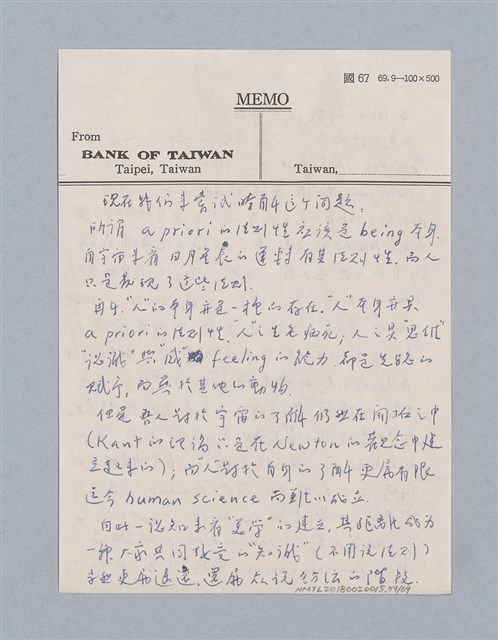 國 67 69.9—100×500
MEMO
From
BANK OF TAIWAN
Taipei, Taiwan
Taiwan,
现在我们来尝试瞭解这个问题.
所谓 a priori 的法则性应该是 being 本身.
自宇宙来看日月星辰的運轉有其法则性. 而人
只是發现了这些法则.
再者,"人"的本身亦是一種的存在."人"本身亦具
a priori 的法则性."人"之生老病死; 人之具"思维"
"認識"與"感 feeling 的能力. 都是先验的
赋予, 而異於其他的動物.
但是吾人對於宇宙的了解仍然在開拓之中
(Kant 的認識只是在 Newton 的觀念中建
立起来的); 而"人"對於自身的了解更属有限
迄今 human science 尚難以成立.
由此一認知来看"美学"的建立, 其距離成为
一種大家共同接受的"知識"(不用说法则)
更属遥遠, 還屬众说纷纭的階段.
HMTL20180020015.54/59